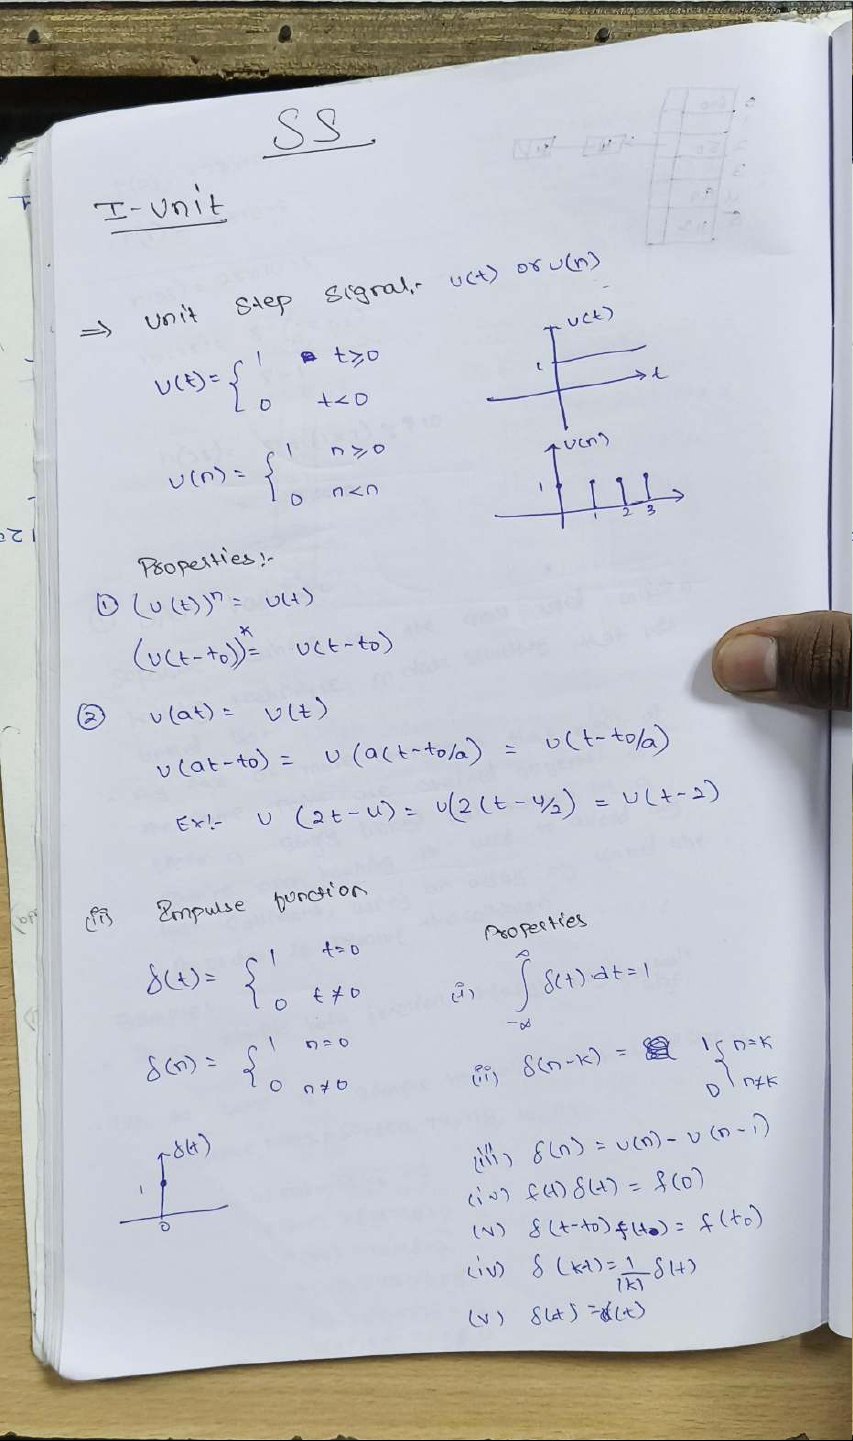 SS
I-Unit
⇒ Unit Step Signal:- u(t) or u(n)
u(t) = { 1 t≥0
0 t<0
u(t)
1
t
u(n) = { 1 n≥0
0 n<n
u(n)
1
1 2 3
Properties:-
① (u(t))ⁿ = u(t)
(u(t-t0))ᵏ = u(t-t0)
② u(at) = u(t)
u(at-t0) = u(a(t-t0/a) = u(t-t0/a)
Ex:- u (2t-4) = u(2(t-4/2) = u(t-2)
(ii) Impulse function
δ(t) = { 1 t=0
0 t≠0
δ(n) = { 1 n=0
0 n≠0
δ(t)
1
0
Properties
(i) ∫ δ(t) dt = 1
∞
-∞
(ii) δ(n-k) = 1 { n=k
0 n≠k
(iii) δ(n) = u(n) - u(n-1)
(iv) f(t) δ(t) = f(0)
(v) δ(t-t0) f(t0) = f(t0)
(iv) δ(kt) = 1/|k| δ(t)
(v) δ(t) = δ(t)